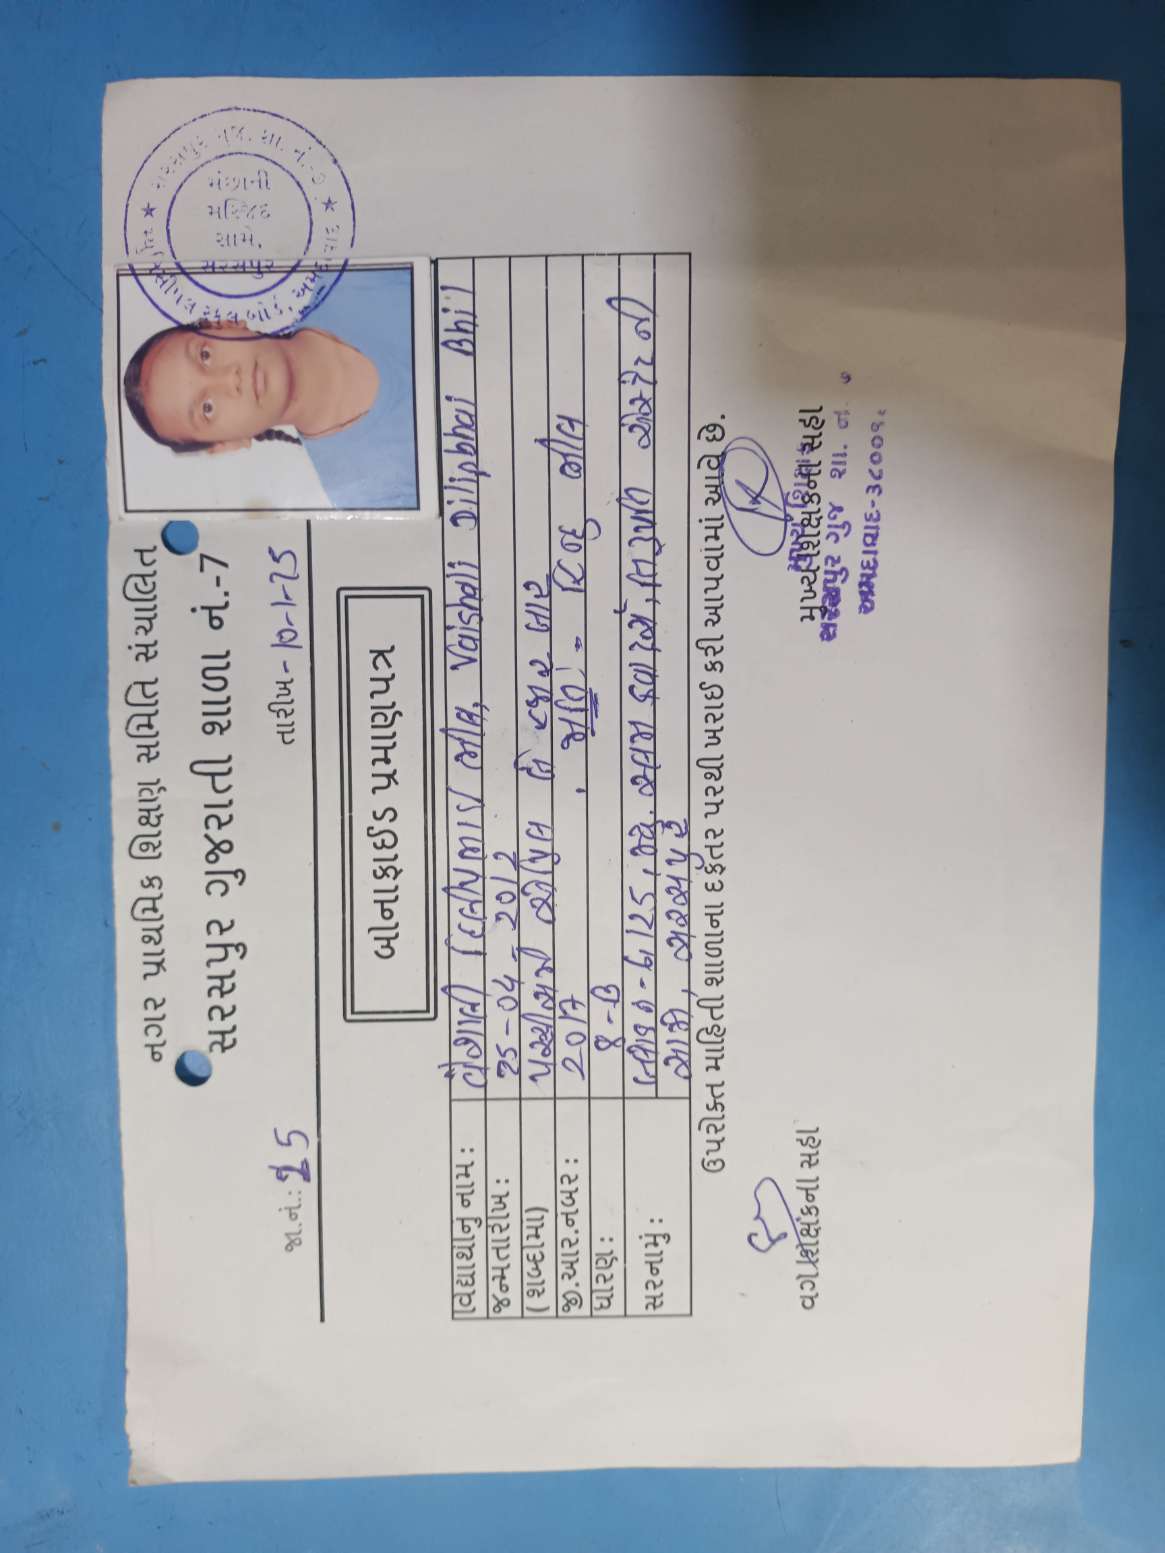 નગર પ્રાથમિક શિક્ષણ સમિતિ સંચાલિત
સરસપુર ગુજરાતી શાળા નં.-7
જા.નં.: 25
તારીખ - 10-1-25
બોનાફાઈડ પ્રમાણપત્ર
વિદ્યાર્થીનું નામ : વૈશાલી દિલીપભાઈ ભીલ, Vaishali Dilipbhai Bhil
જન્મતારીખ : 25-04-2012
(શબ્દોમાં) પચ્ચીસમી એપ્રિલ બે હજાર બાર
જી.આર.નંબર : 2017, જાતિ :- હિન્દુ ભીલ
ધોરણ : 8-B
સરનામું :
સામે, સરસપુર
ઉપરોક્ત માહિતી શાળાના દફતર પરથી ખરાઈ કરી આપવામાં આવે છે.
વર્ગશિક્ષકની સહી
મુખ્ય શિક્ષકની સહી
સરસપુર ગુજ શા. નં. ૭
અમદાવાદ-૩૮૦૦૧૮
સરસપુર ગુજ. શા. નં.-૭
મંછાની
મસ્જિદ
સામે,
સરસપુર